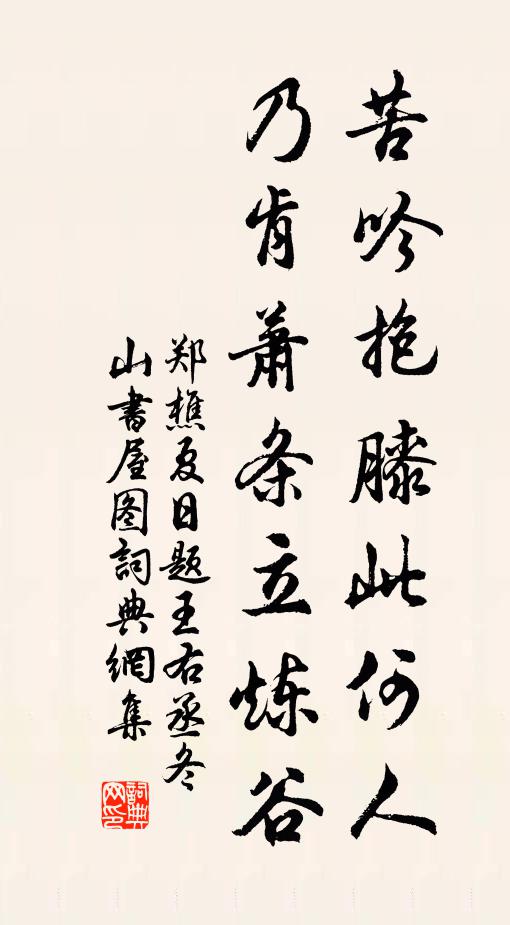 苦吟抱膝此何人
乃肯蕭条立炼谷
郑樵夏日题王右丞冬
山書屋图詞典網集
詞典网印